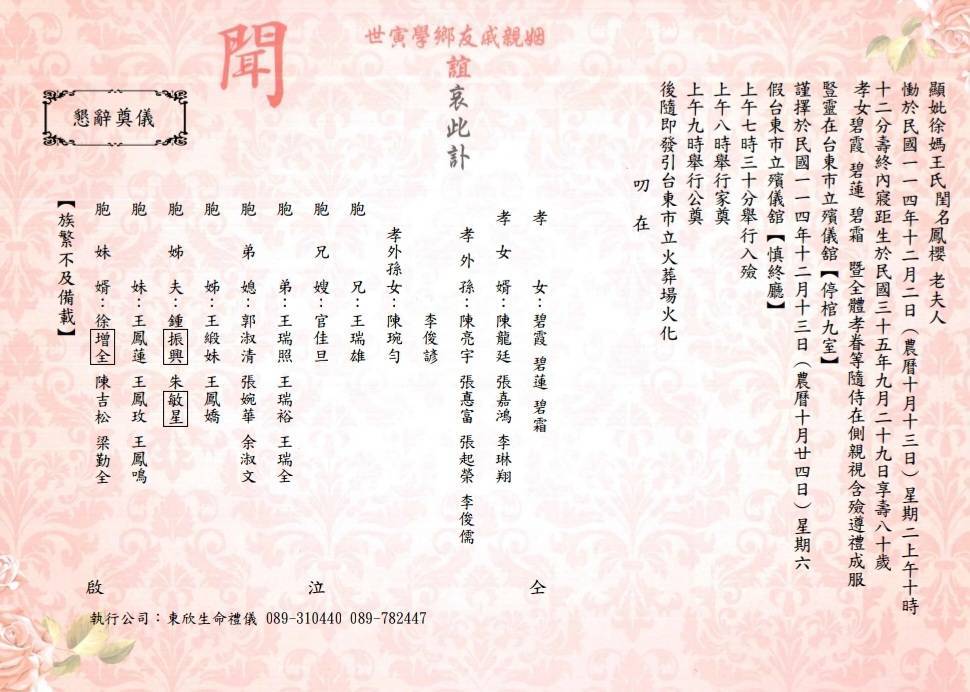 顯妣徐媽王氏閨名鳳櫻 老夫人
慟於民國一一四年十二月二日（農曆十月十三日）星期二上午十時
十二分壽終內寢距生於民國三十五年九月二十九日享壽八十歲
孝女碧霞 碧蓮 碧霜 暨全體孝眷等隨侍在側親視含殮遵禮成服
豎靈在台東市立殯儀館【停棺九室】
謹擇於民國一一四年十二月十三日（農曆十月廿四日）星期六
假台東市立殯儀館【慎終廳】
上午七時三十分舉行入殮
上午八時舉行家奠
上午九時舉行公奠
後隨即發引台東市立火葬場火化
叨在
世寅學鄉友戚親姻
誼哀此訃
聞
懇辭奠儀
孝女：碧霞 碧蓮 碧霜
孝女婿：陳龍廷 張嘉鴻 李琳翔
孝外孫：陳亮宇 張惪富 張起榮 李俊儒
李俊諺
孝外孫女：陳琬勻
胞兄：王瑞雄
胞兄嫂：官佳旦
胞弟：王瑞照 王瑞裕 王瑞全
胞弟媳：郭淑清 張婉華 余淑文
胞姊：王緞妹 王鳳嬌
胞姊夫：鍾振興 朱敏星
胞妹：王鳳蓮 王鳳玫 王鳳鳴
胞妹婿：徐增全 陳吉松 梁勤全
【族繁不及備載】
仝泣啟
執行公司：東欣生命禮儀 089-310440 089-782447